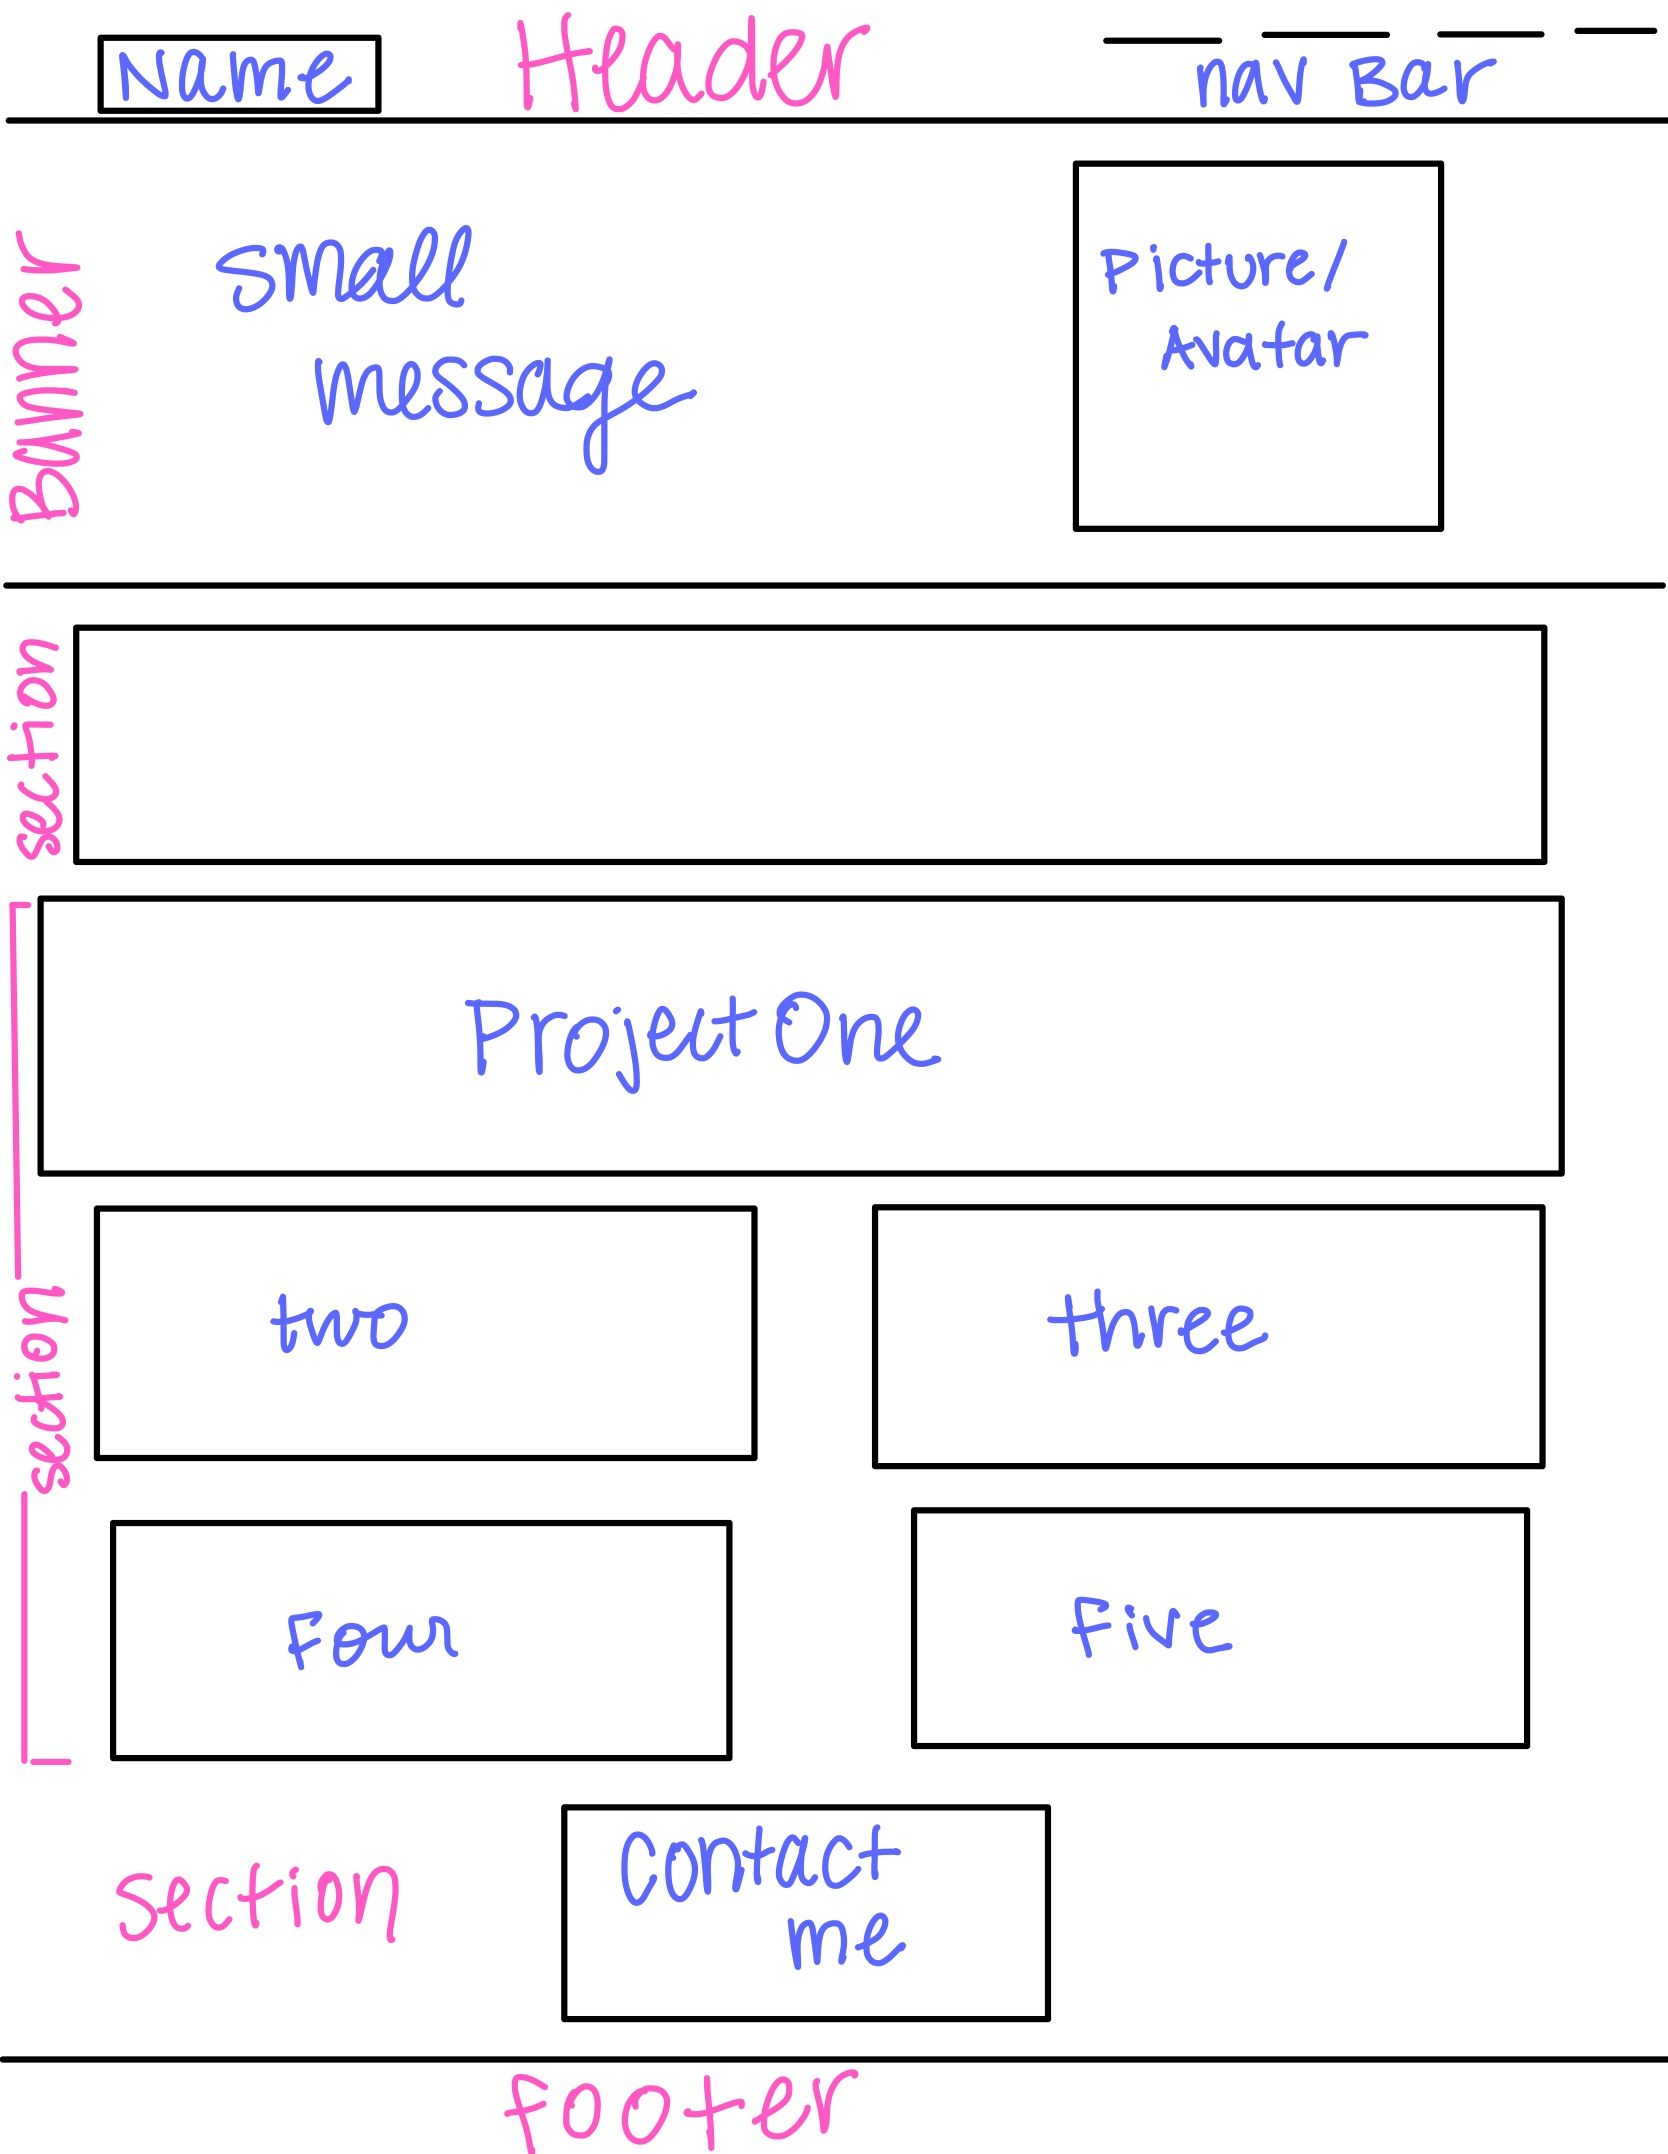 Name
Header
nav Bar
Banner
small
message
Picture/
Avatar
section
Project One
section
two
three
Four
Five
Section
Contact
me
Footer